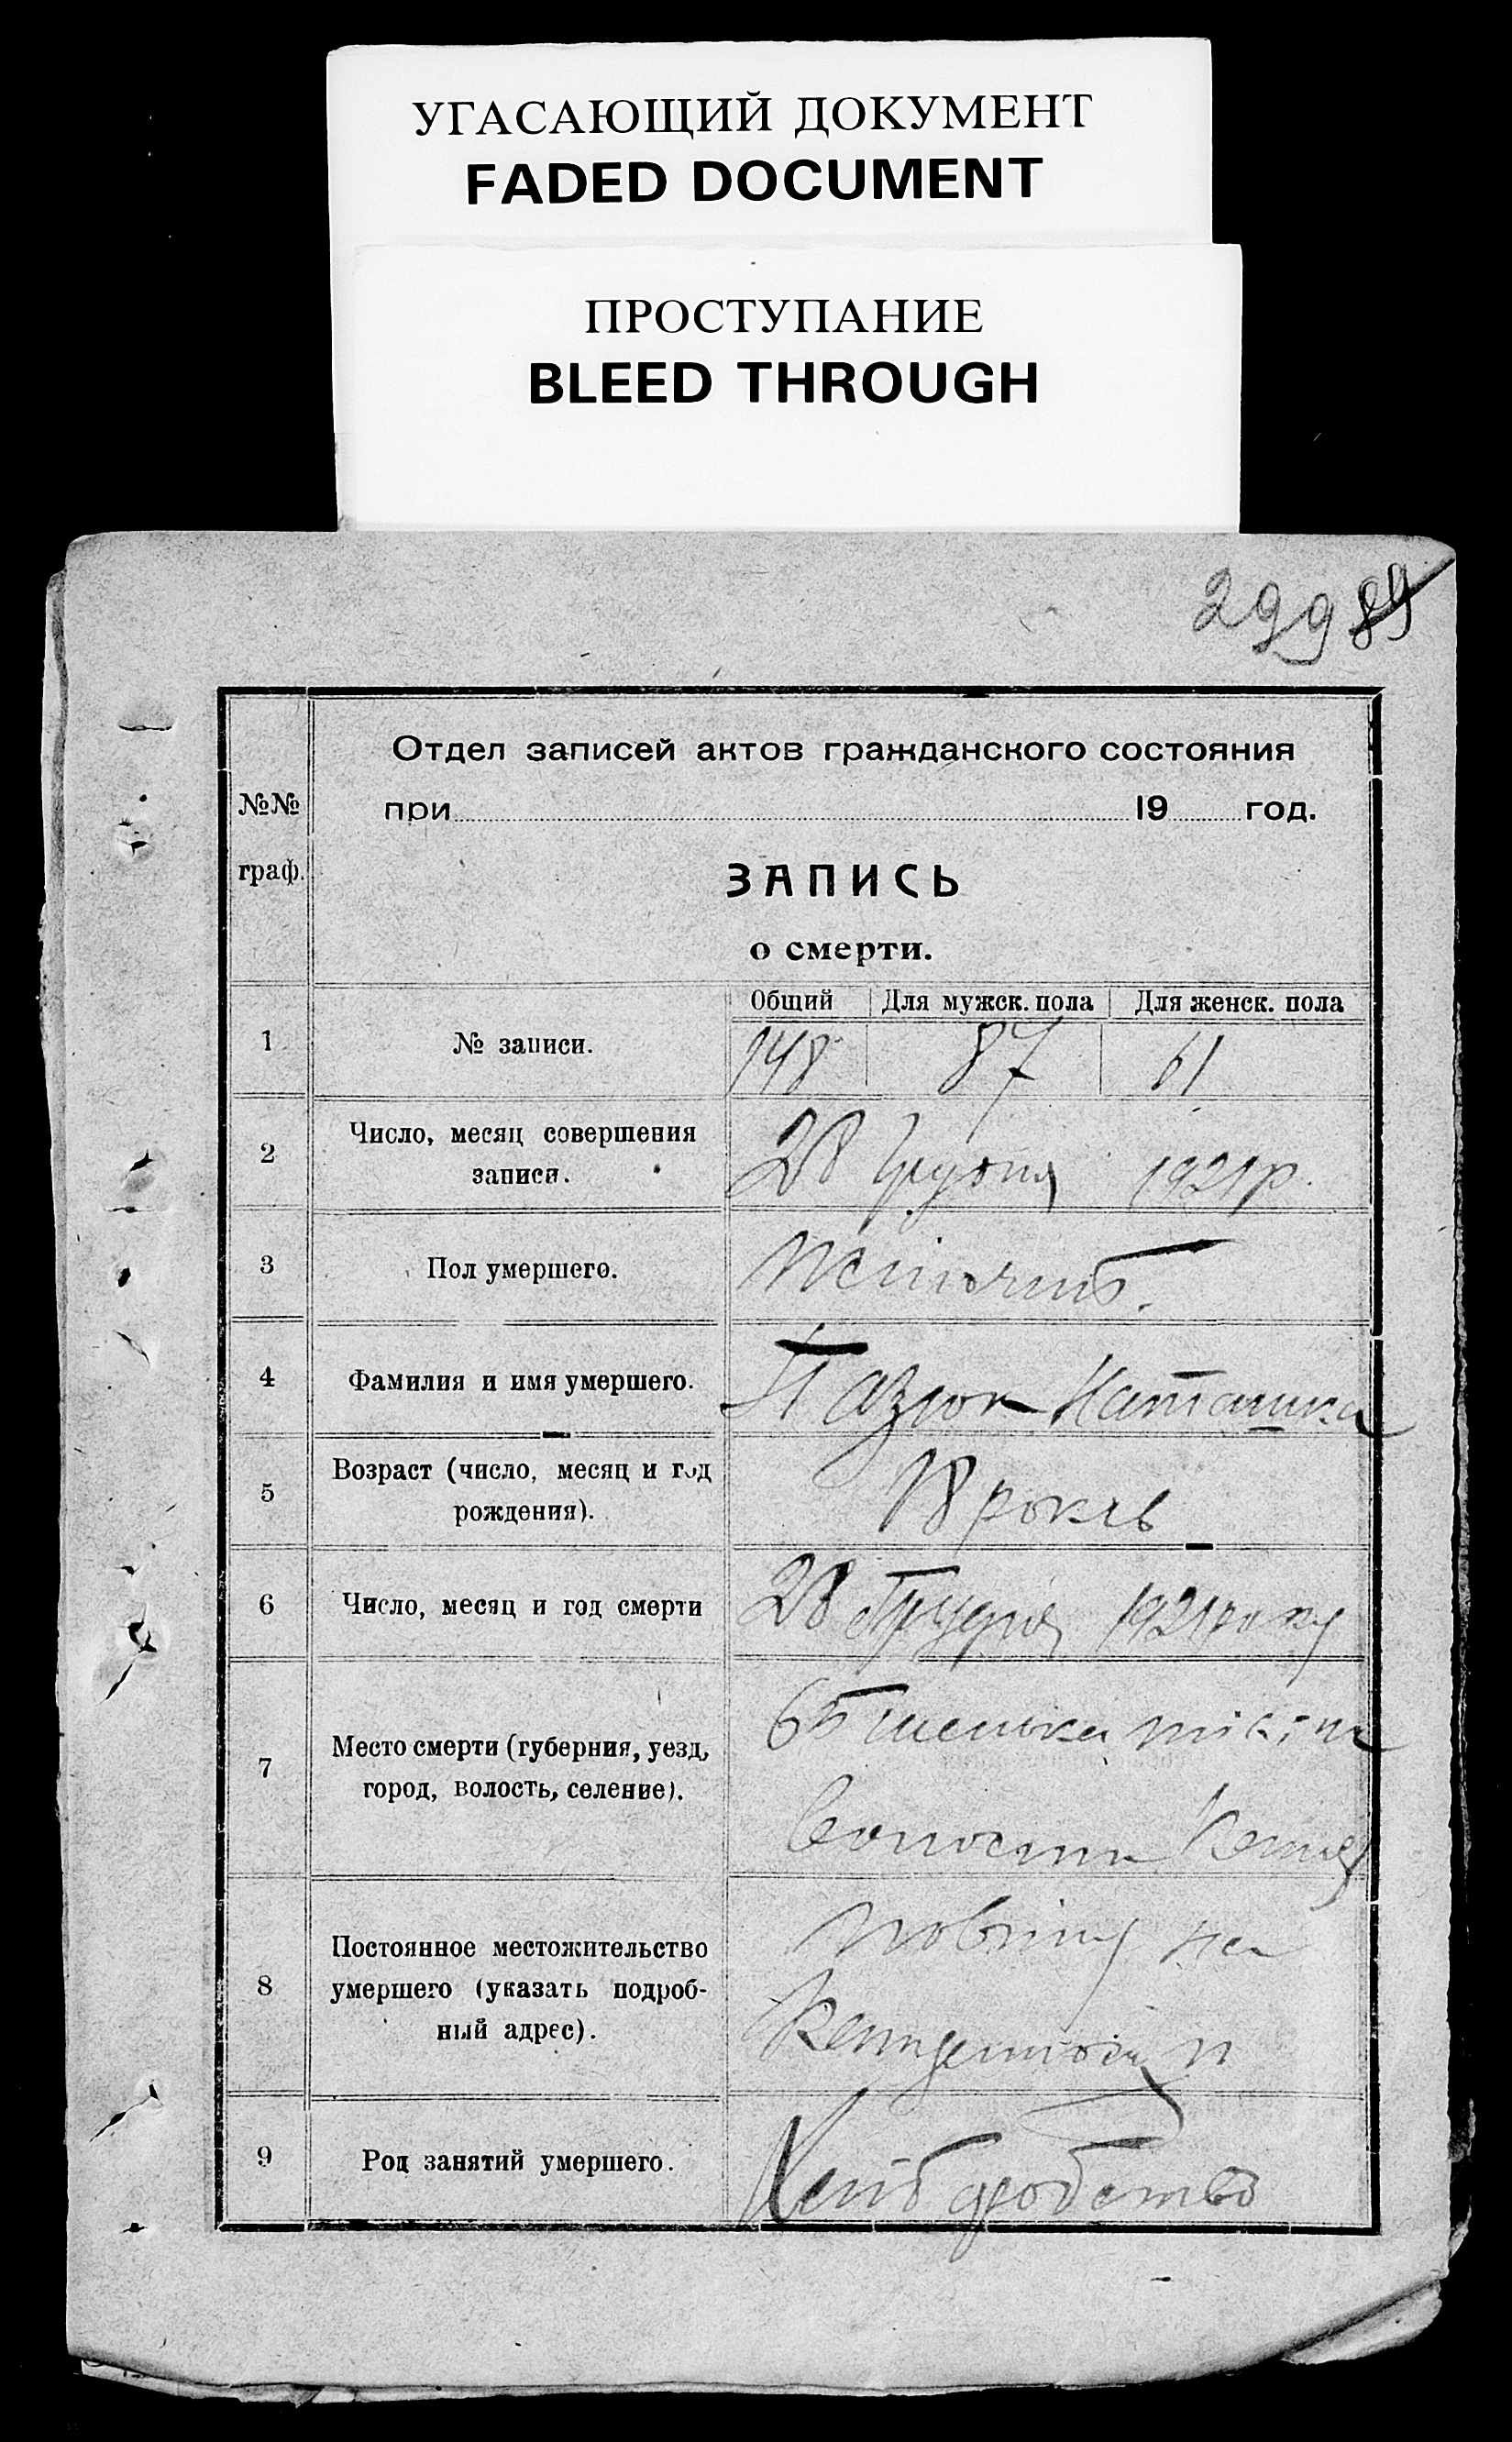 УГАСАЮЩИЙ ДОКУМЕНТ
FADED DOCUMENT
ПРОСТУПАНИЕ
BLEED THROUGH
299 89
Отдел записей актов гражданского состояния
№№ при 19 год.
граф. ЗАПИСЬ
о смерти.
Общий Для мужск. пола Для женск. пола
1 № записи. 148 87 61
2 Число, месяц совершения
записи. 28 Грудня 1921р.
3 Пол умершего.
4 Фамилия и имя умершего. Пазюк Наташка
5 Возраст (число, месяц и год
рождения). 18 років
6 Число, месяц и год смерти 28 Грудня 1921 року
7 Место смерти (губерния, уезд,
город, волость, селение).
волости
8 Постоянное местожительство
умершего (указать подроб-
ный адрес). повіту на
9 Род занятий умершего. Хлібородство